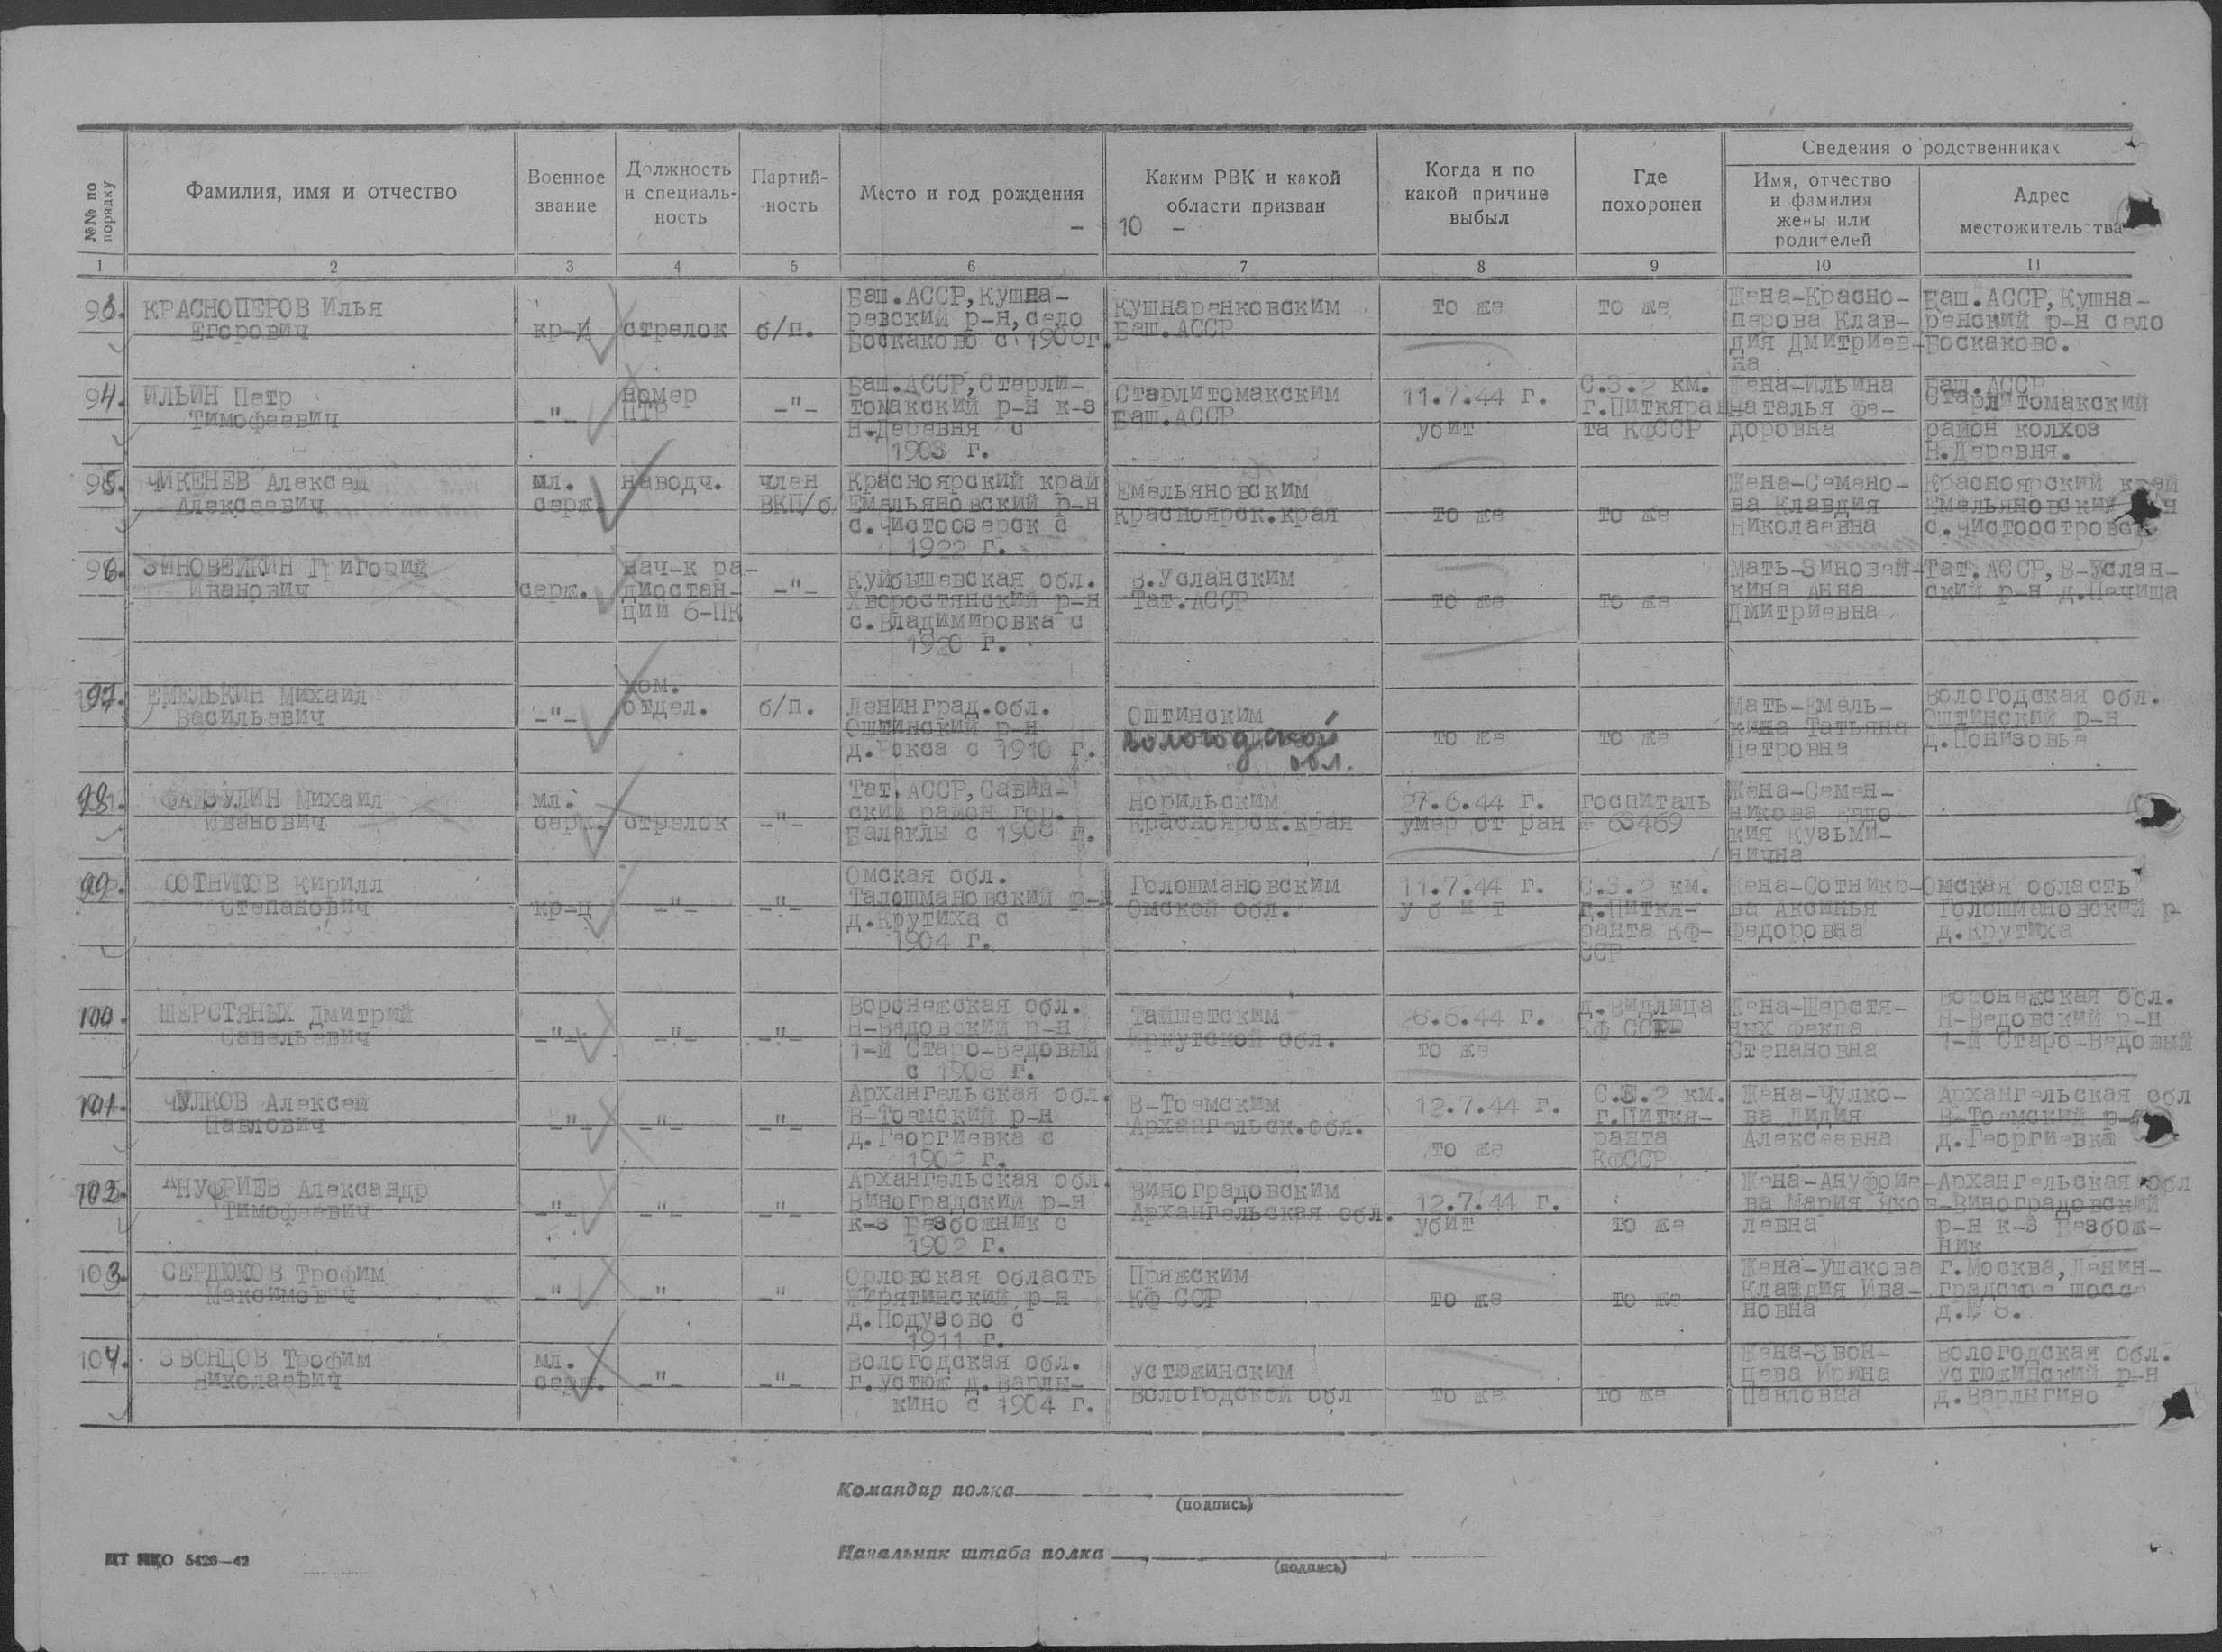 №№ по порядку
Фамилия, имя и отчество
Военное звание
Должность и специаль-ность
Партий-ность
Место и год рождения
Каким РВК и какой области призван
Когда и по какой причине выбыл
Где похоронен
Сведения о родственниках
Имя, отчество и фамилия жены или родителей
Адрес местожительства
- 10 -
1 2 3 4 5 6 7 8 9 10 11
93. КРАСНОПЕРОВ Илья Егорович кр-ц стрелок б/п. Баш.АССР,Кушна-ревский р-н,село Боскаково с 1906г. Кушнаренковским Баш.АССР то же то же Жена-Красно-перова Клав-дия Дмитриев-на Баш.АССР,Кушна-ренский р-н село Боскаково.
94. ИЛЬИН Петр Тимофеевич -"- номер ПТР -"- Баш.АССР,Стерли-томакский р-н к-з Н.Деревня с 1903 г. Стерлитомакским Баш.АССР 11.7.44 г. убит С.З.2 км. г.Питкяран-та КФССР Жена-Ильина Наталья Фе-доровна Баш.АССР Стерлитомакский район колхоз Н.Деревня.
95. ЧИКЕНЕВ Алексей Алексеевич мл. серж. наводч. член ВКП/б Красноярский край Емельяновский р-н с.Чистоозерск с 1922 г. Емельяновским Красноярск.края то же то же Жена-Семено-ва Клавдия Николаевна Красноярский край Емельяновский с.Чистоостровск
96. ЗИНОВЕЙКИН Григорий Иванович серж. нач-к ра-диостан-ций 6-ПК -"- Куйбышевская обл. Хворостянский р-н с.Владимировка с 1920 г. В.Усланским Тат.АССР то же то же Мать-Зиновей-кина Анна Дмитриевна Тат.АССР,В-Услан-ский р-н д.Печища
97. ЕМЕЛЬКИН Михаил Васильевич -"- ком. отдел. б/п. Ленинград.обл. Оштинский р-н д. Рокса с 1910 г. Оштинским Вологодской обл. то же то же Мать-Емель-кина Татьяна Петровна Вологодская обл. Оштинский р-н д.Понизовье
98. ФАЙЗУЛИН Михаил Иванович мл. серж. стрелок -"- Тат.АССР,Сабин-ский район гор. Балаклы с 1908 г. Норильским Красноярск.края 27.6.44 г. умер от ран госпиталь № 63469 Жена-Семен-никова Евдо-кия Кузьми-нична
99. СОТНИКОВ Кирилл Степанович кр-ц -"- -"- Омская обл. Талошмановский р-н д.Крутиха с 1904 г. Голошмановским Омской обл. 11.7.44 г. у б и т С.З.2 км. г.Питкя-ранта КФ-ССР Жена-Сотнико-ва Аксинья Федоровна Омская область Голошмановский р- д.Крутиха
100. ШЕРСТЯНЫХ Дмитрий Савельевич -"- -"- -"- Воронежская обл. Н-Ведовский р-н 1-й Старо-Ведовый с 1908 г. Тайшетским Иркутской обл. 26.6.44 г. то же д.Видлица КФ ССР Жена-Шерстя-ных Фекла Степановна Воронежская обл. Н-Ведовский р-н 1-й Старо-Ведовый
101. ЧУЛКОВ Алексей Павлович -"- -"- -"- Архангельская обл. В-Тоемский р-н д.Георгиевка с 1902 г. В-Тоемским Архангельск.обл. 12.7.44 г. то же С.З.2 км. г.Питкя-ранта КФССР Жена-Чулко-ва Лидия Алексеевна Архангельская обл В-Тоемский р-н д.Георгиевка
102. АНУФРИЕВ Александр Тимофеевич -"- -"- -"- Архангельская обл. Виноградский р-н к-з Безбожник с 1902 г. Виноградовским Архангельская обл. 12.7.44 г. убит то же Жена-Ануфрие-ва Мария Яков-левна Архангельская обл Виноградовский р-н к-з Безбож-ник
103. СЕРДЮКОВ Трофим Максимович -"- -"- -"- Орловская область Жирятинский р-н д.Подузово с 1911 г. Пряжским КФ ССР то же то же Жена-Ушакова Клавдия Ива-новна г.Москва,Ленин-градское шоссе д.№ 8.
104. ЗВОНЦОВ Трофим Николаевич мл. серж. -"- -"- Вологодская обл. г.Устюж д.Варлы-кино с 1904 г. Устюжинским Вологодской обл то же то же Жена-Звон-цева Ирина Павловна Вологодская обл. Устюжинский р-н д.Варлыгино
Командир полка
(подпись)
Начальник штаба полка
(подпись)
ЦТ НКО 5426—42